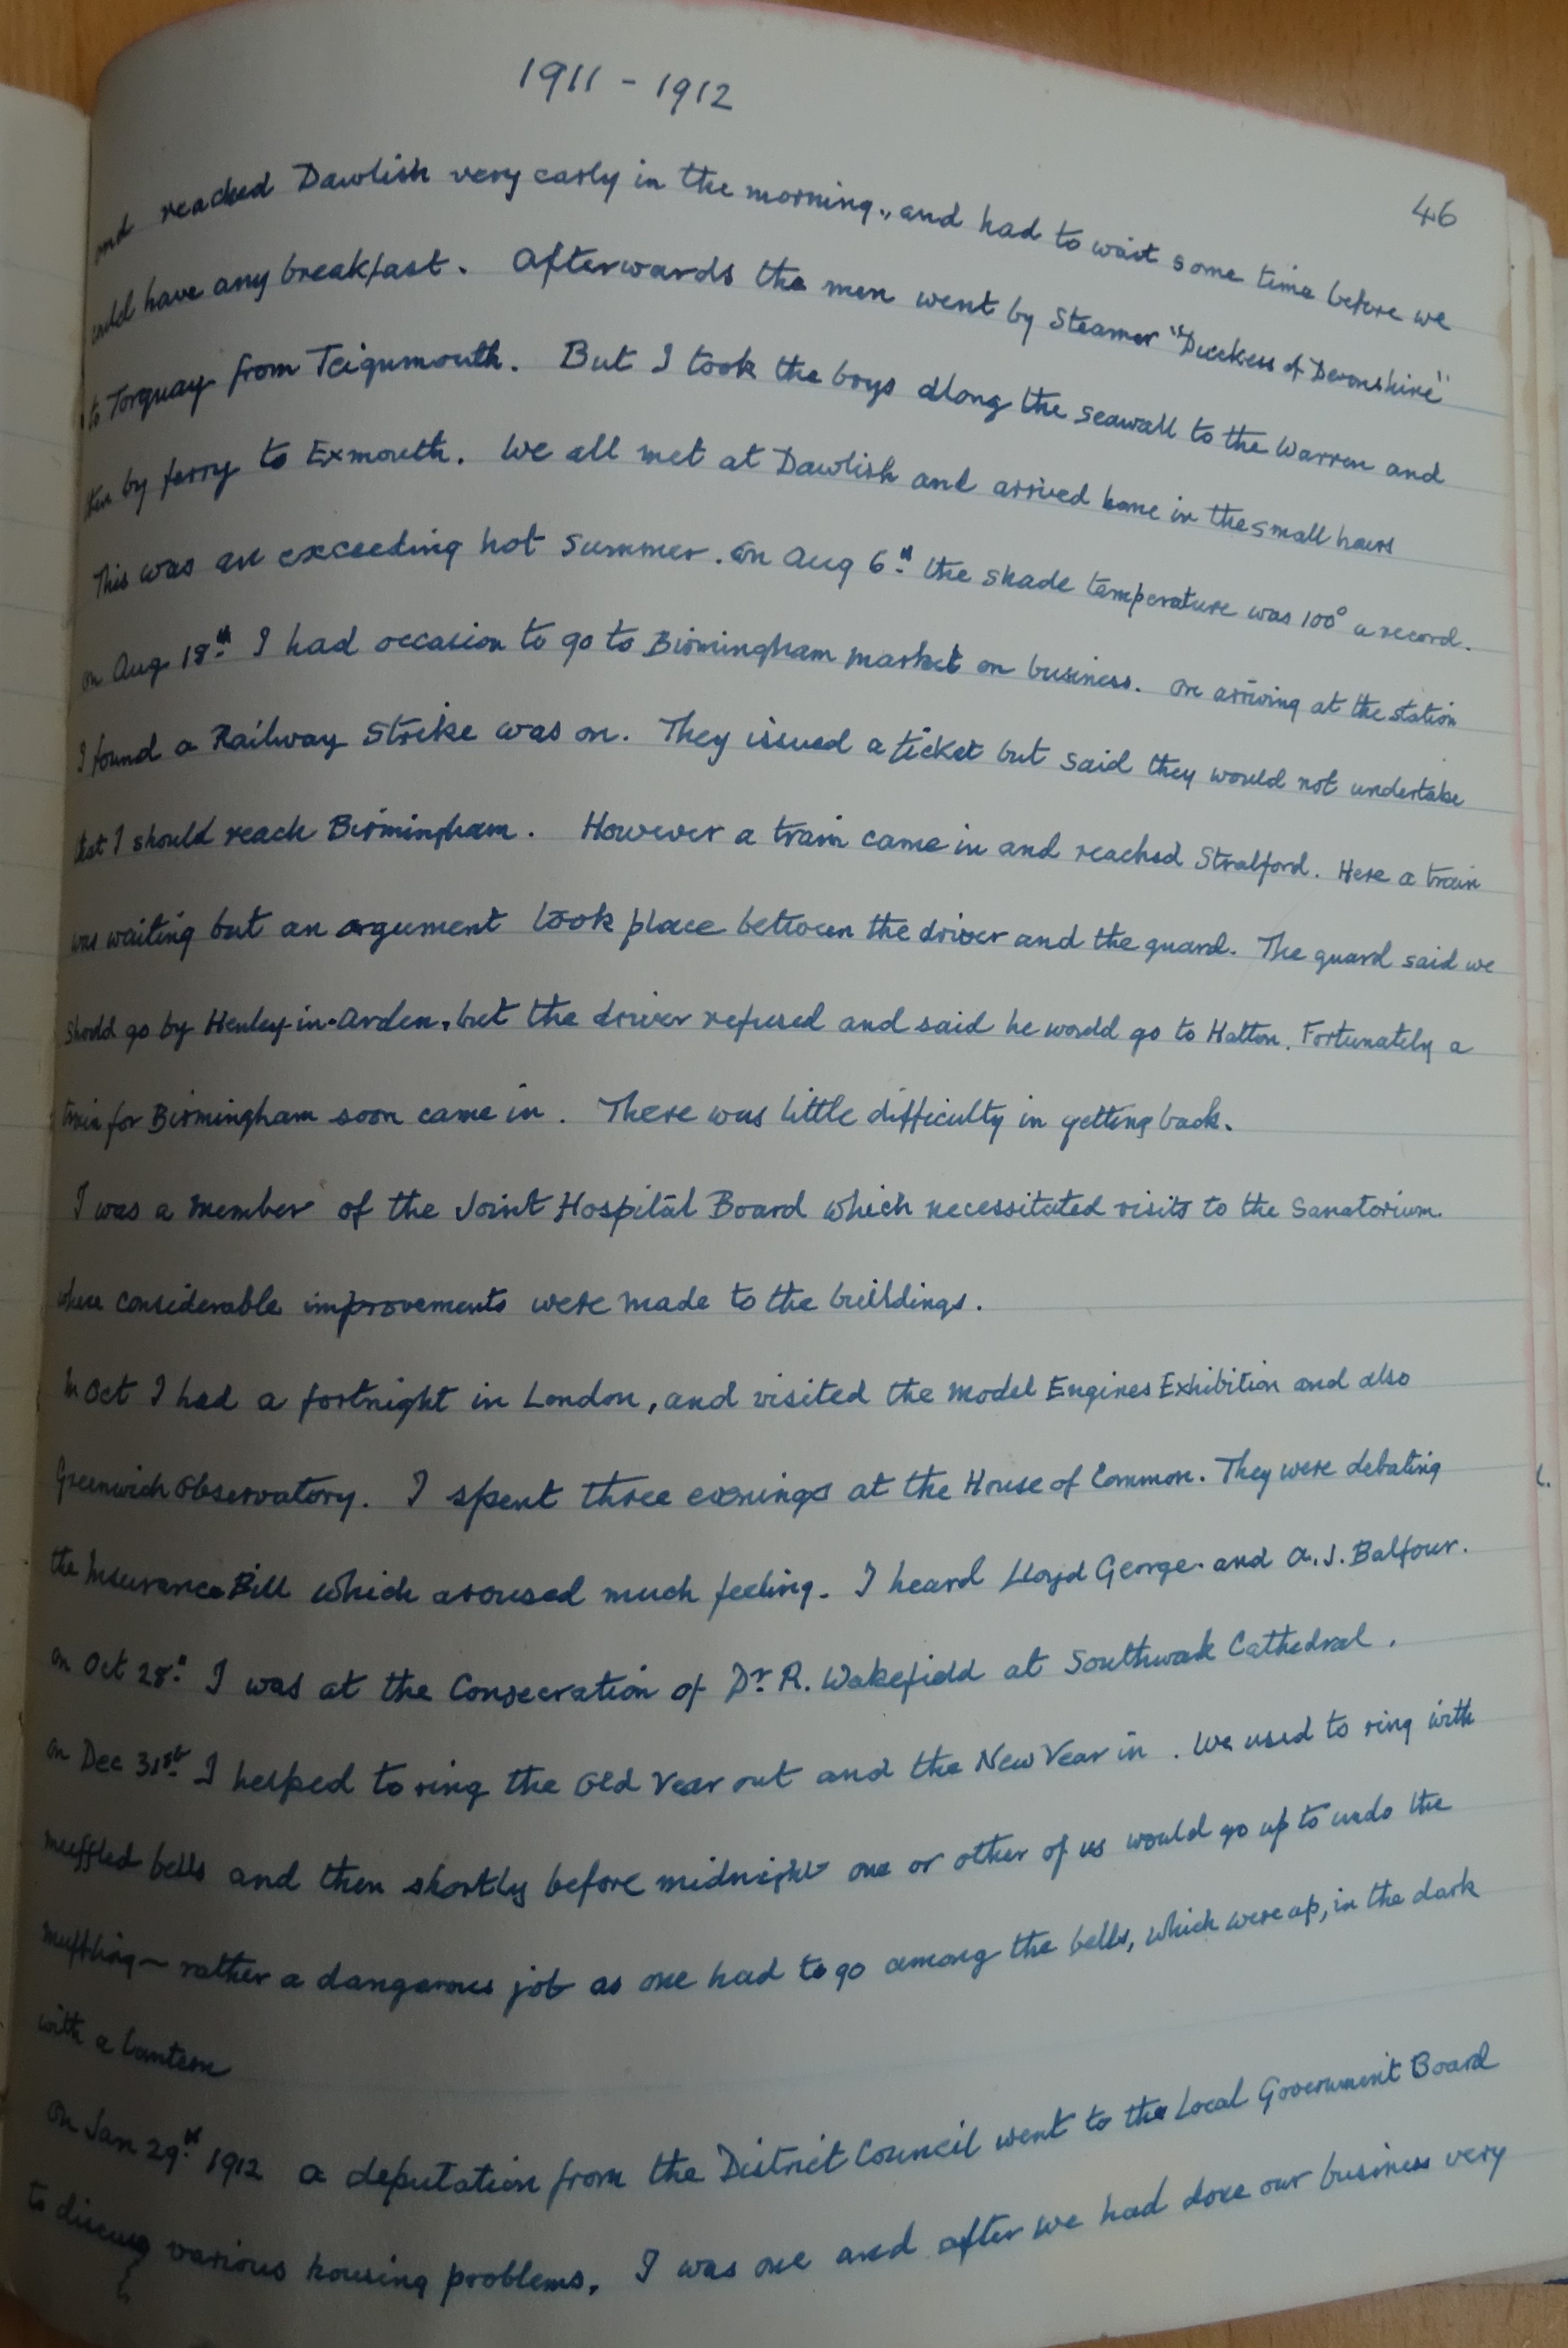 1911 - 1912
46
and reached Dawlish very early in the morning., and had to wait some time before we
could have any breakfast. Afterwards the men went by Steamer "Duchess of Devonshire"
to Torquay from Teignmouth. But I took the boys along the seawall to the Warren and
then by ferry to Exmouth. We all met at Dawlish and arrived home in the small hours
This was an exceeding hot summer. On Aug 6th the shade temperature was 100° a record.
on Aug 18th I had occasion to go to Birmingham market on business. On arriving at the station
I found a Railway Strike was on. They issued a ticket but said they would not undertake
that I should reach Birmingham. However a train came in and reached Stratford. Here a train
was waiting but an argument took place between the driver and the guard. The guard said we
should go by Henley-in-Arden, but the driver refused and said he would go to Hatton. Fortunately a
train for Birmingham soon came in. There was little difficulty in getting back.
I was a member of the Joint Hospital Board which necessitated visits to the Sanatorium.
where considerable improvements were made to the buildings.
In Oct I had a fortnight in London, and visited the Model Engines Exhibition and also
Greenwich Observatory. I spent three evenings at the House of Common. They were debating
the Insurance Bill which aroused much feeling. I heard Lloyd George and A. J. Balfour.
on Oct 28th I was at the Consecration of Dr R. Wakefield at Southwak Cathedral.
on Dec 31st I helped to ring the Old Year out and the New Year in. We used to ring with
muffled bells and then shortly before midnight one or other of us would go up to undo the
muffling - rather a dangerous job as one had to go among the bells, which were up, in the dark
with a lantern
On Jan 29th 1912 a deputation from the District Council went to the Local Government Board
to discuss various housing problems. I was one and after we had done our business very